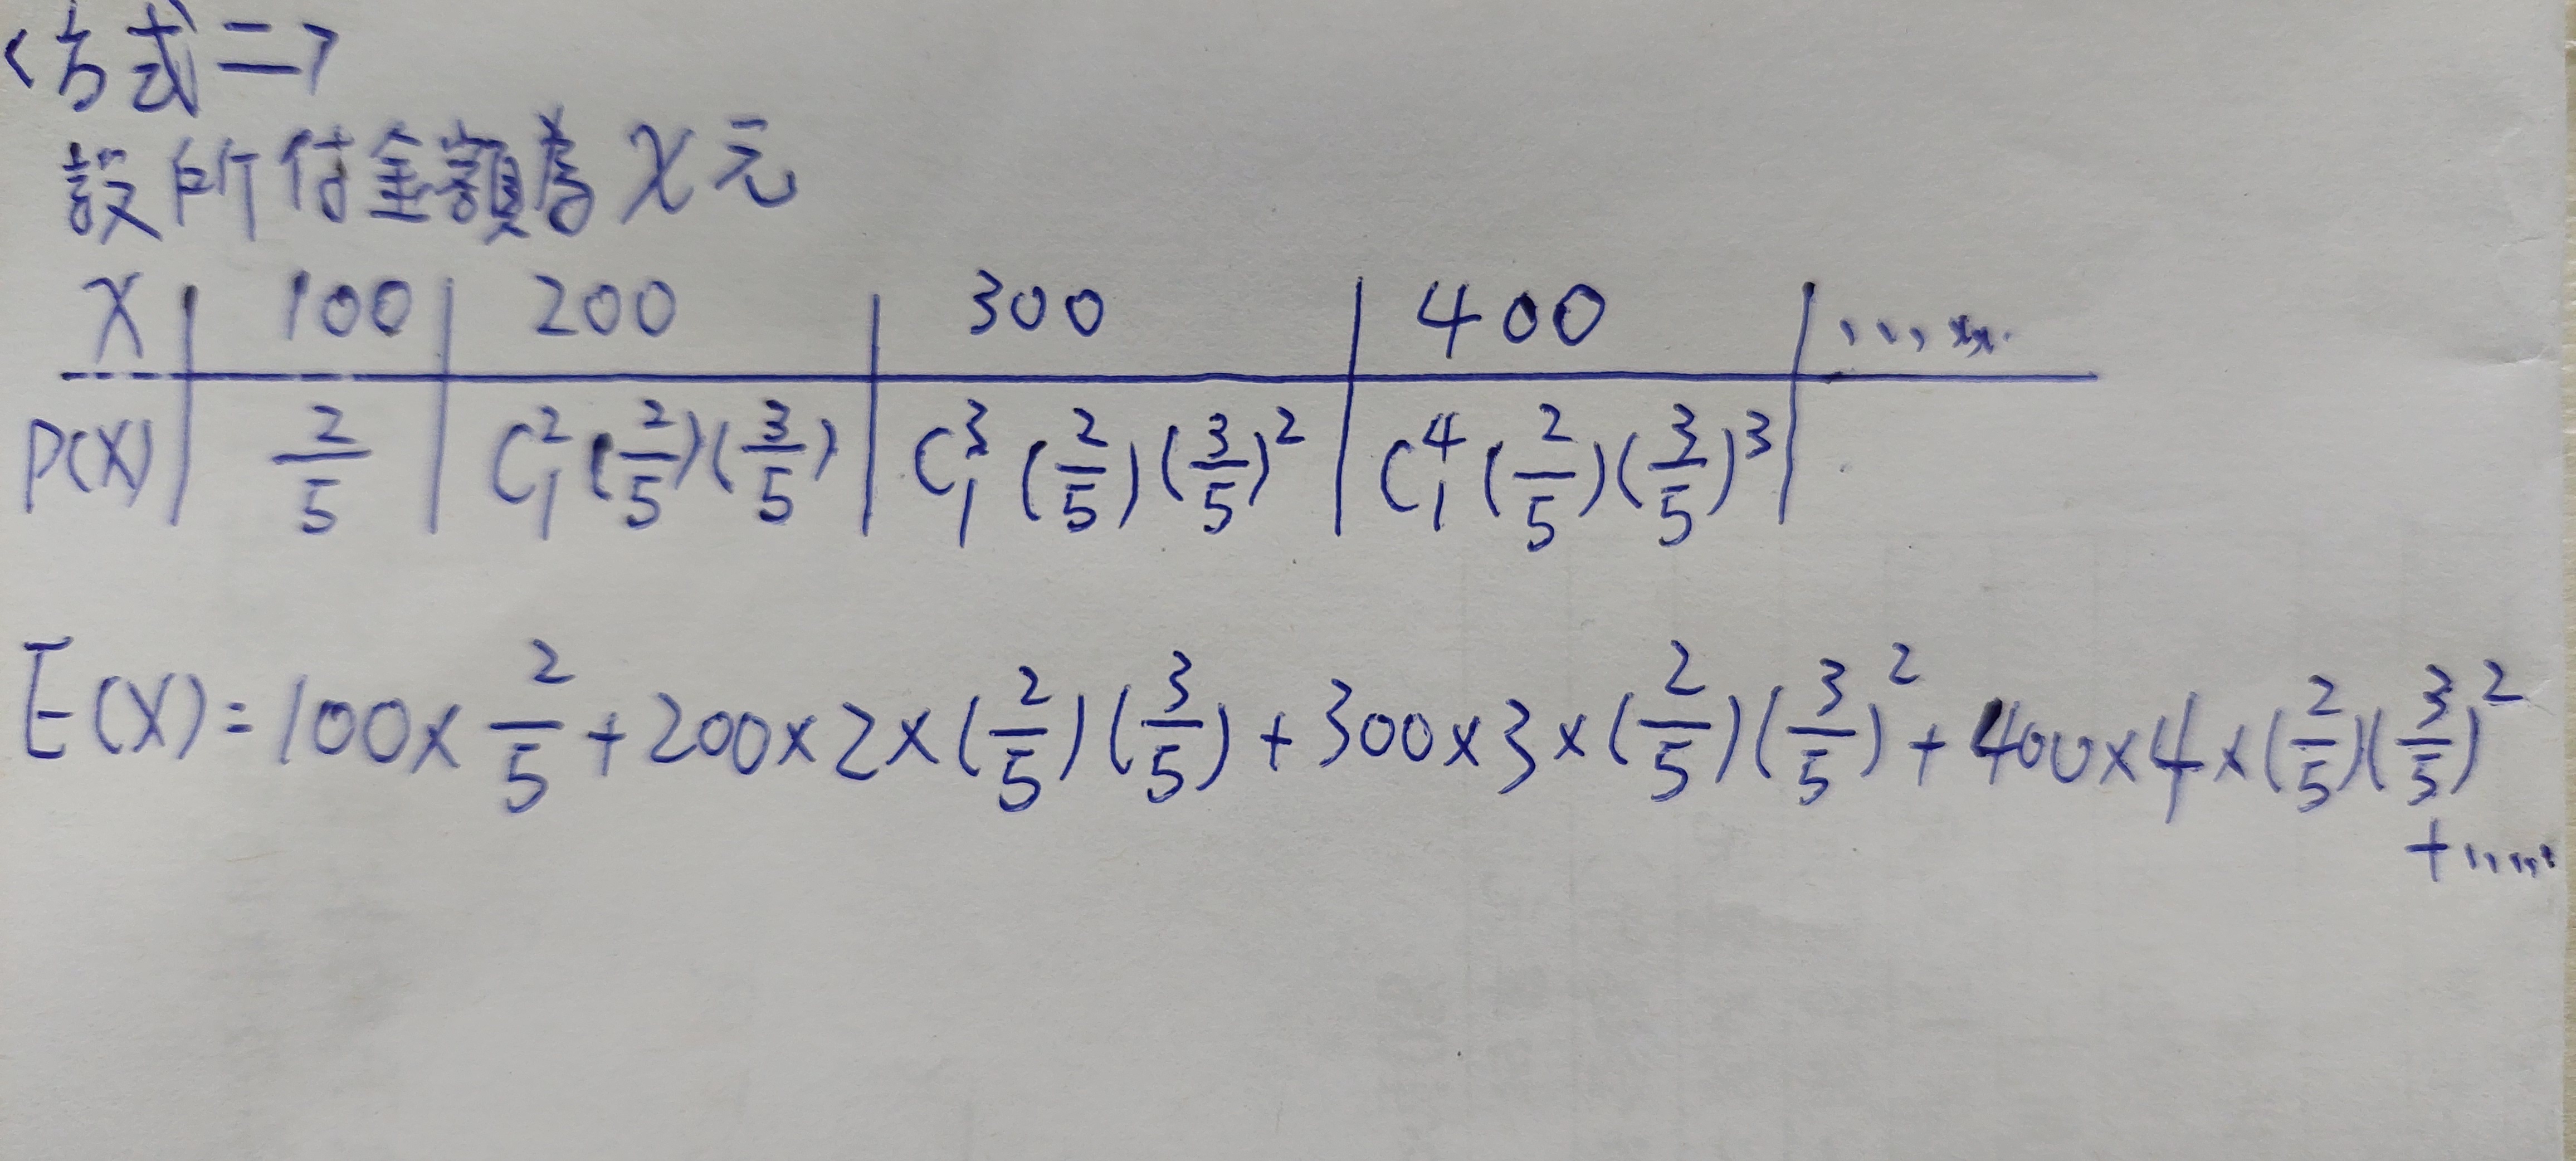 <方式二>
設所付金額為X元
X | 100 | 200 | 300 | 400 | ......
P(X) | 2/5 | C²₁(2/5)(3/5) | C³₁(2/5)(3/5)² | C⁴₁(2/5)(3/5)³ |
E(X)=100×2/5+200×2×(2/5)(3/5)+300×3×(2/5)(3/5)²+400×4×(2/5)(3/5)²
+......